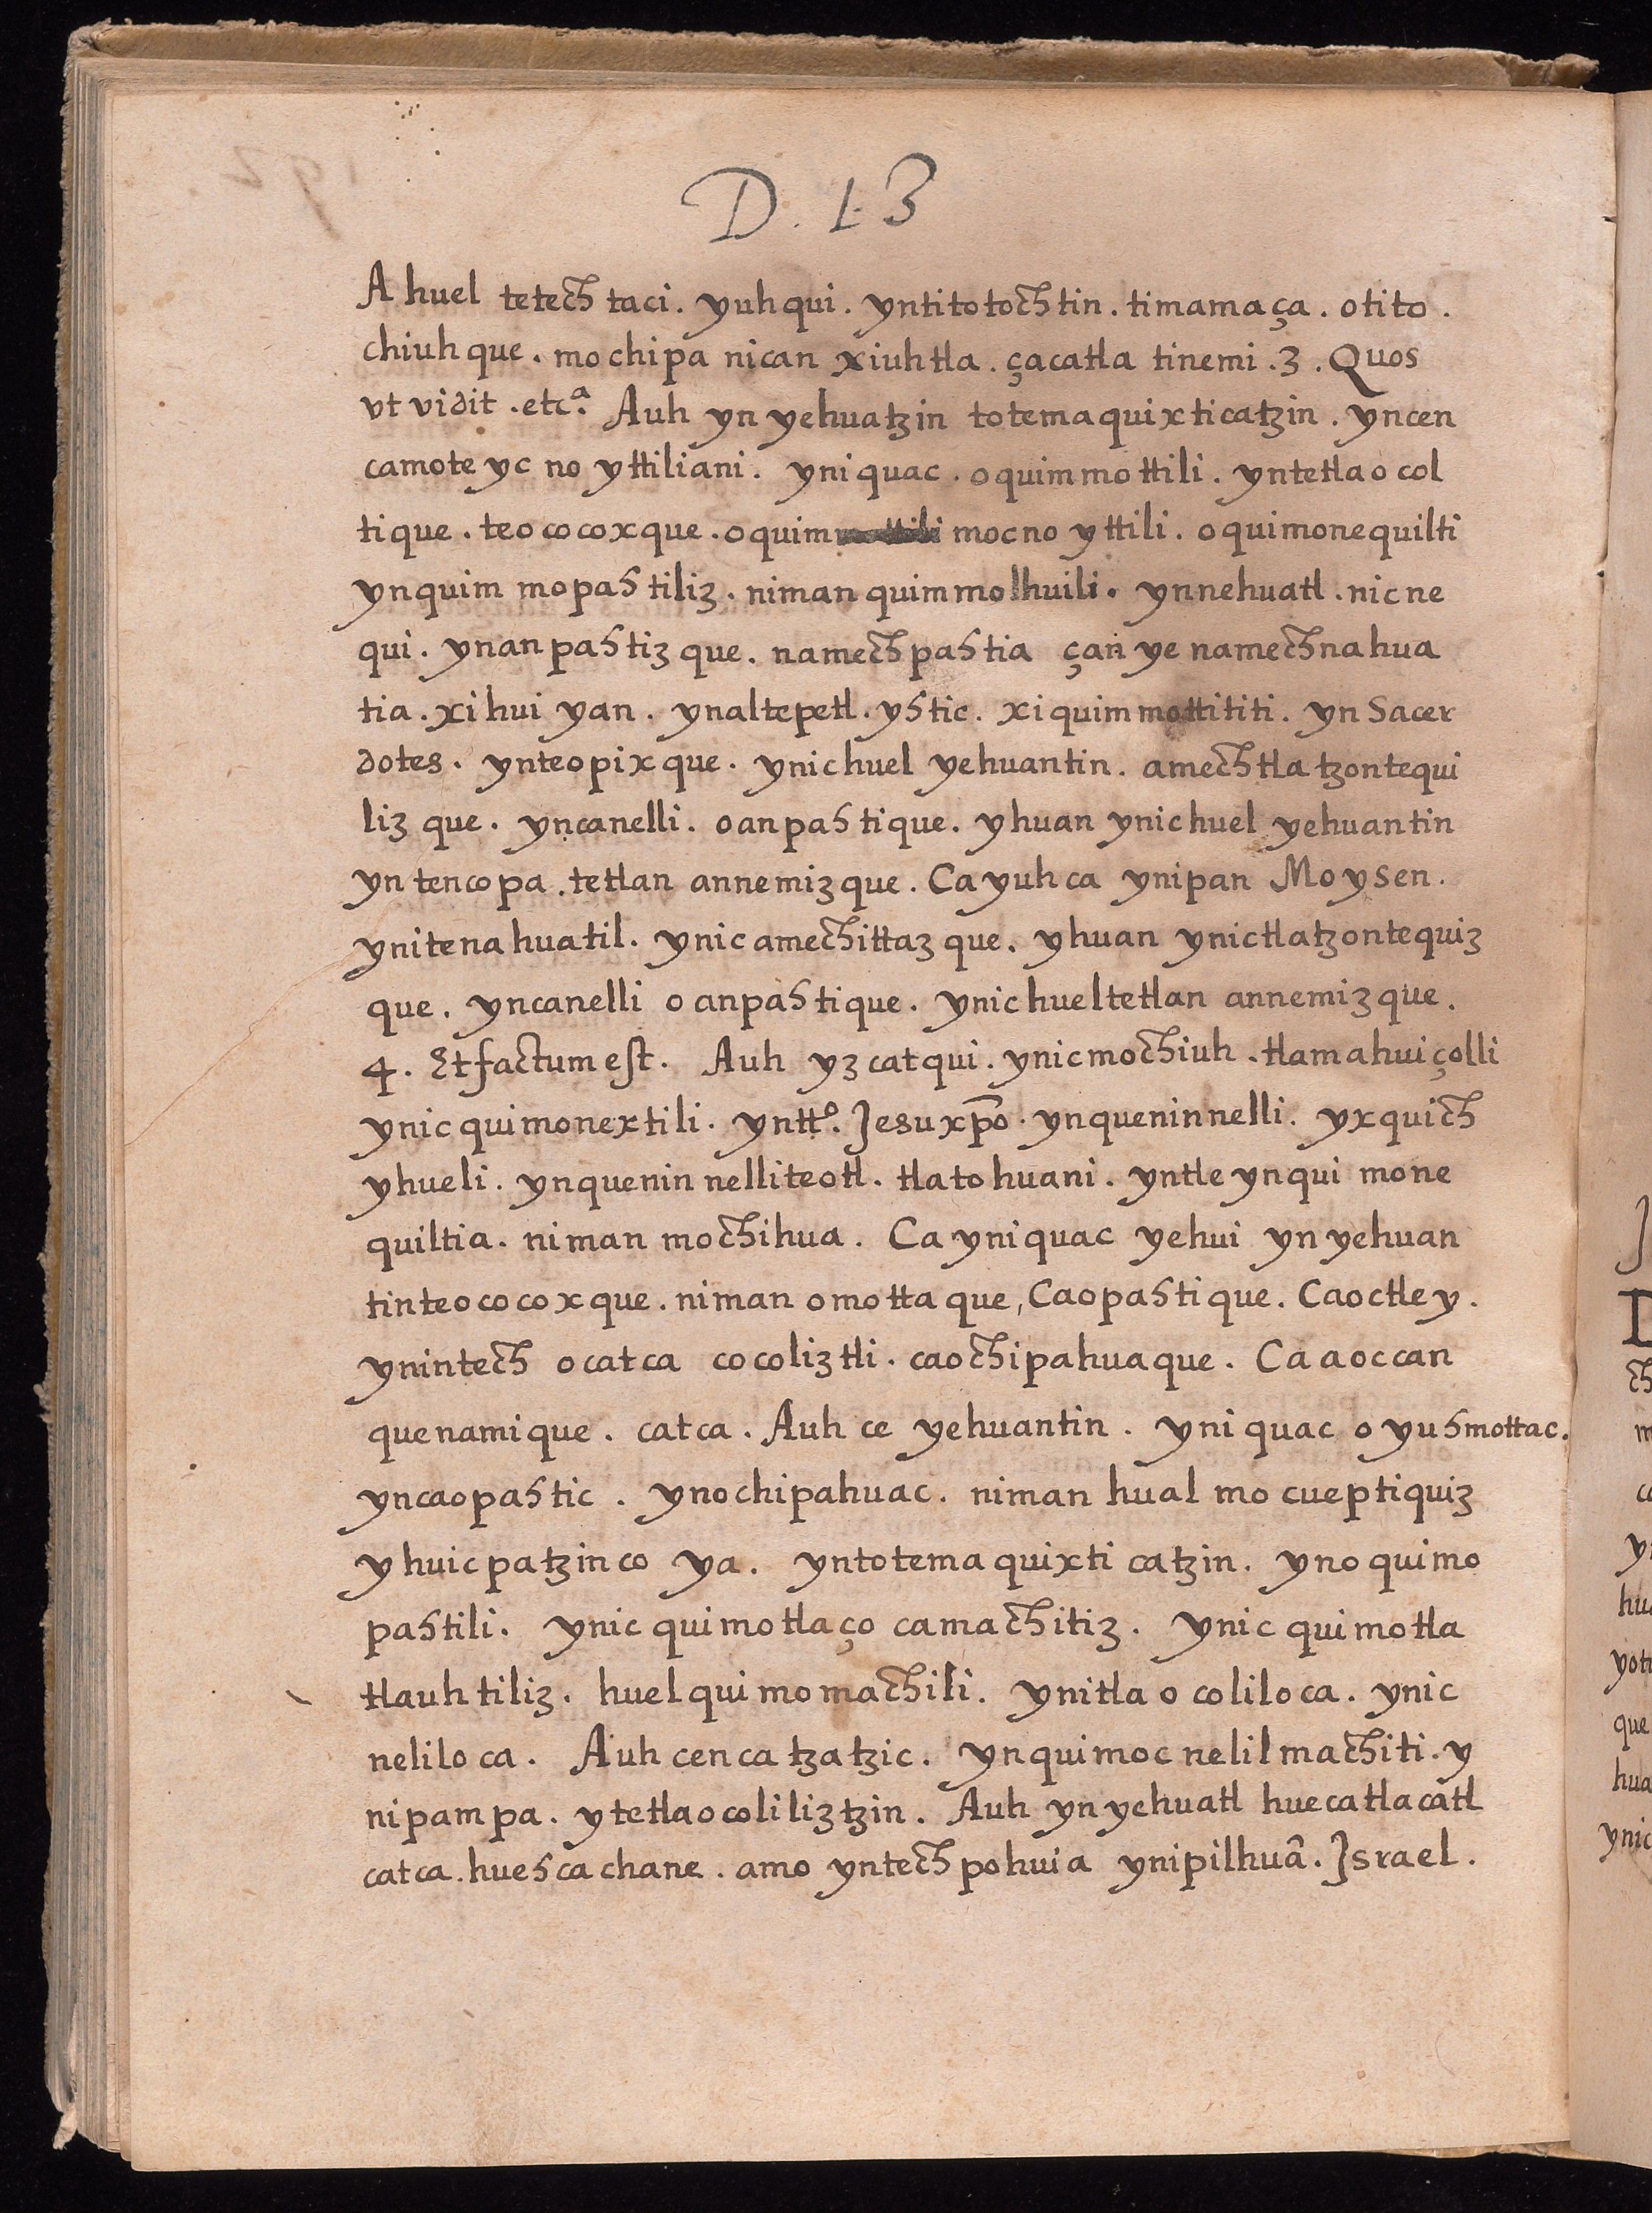 D. 13
A huel tetech taci. yuh qui. yntitotochtin. timamaça. otito.
chiuh que. mochipa nican xiuhtla. çacatla tinemi. 3. Quos
vt vidit. etcª. Auh yn yehuatzin totemaquixticatzin. yncen
camote yc no yttiliani. yni quac. oquimmottili. yntetlao col
tique. teo co coxque. oquim mocno yttili. oquimonequilti
ynquim mopahtiliz. niman quimmolhuili. ynnehuatl. nicne
qui. ynanpahtiz que. namechpahtia çan ye namechnahua
tia. xi hui yan. ynaltepetl. yhtic. xi quimmottititi. yn Sacer
dotes. ynteopixque. ynic huel yehuantin. amechtlatzontequi
liz que. yncanelli. oanpahtique. yhuan ynic huel yehuantin
yn tencopa. tetlan annemizque. Ca yuh ca ynipan Moysen.
ynitenahuatil. ynic amechittaz que. yhuan ynictlatzontequiz
que. yncanelli o anpahtique. ynic hueltetlan annemizque.
4. Et factum est. Auh yz catqui. ynicmochiuh. tlamahuiçolli
ynic quimonextili. yntt.º Jesu xp̄o. ynqueninnelli. yxquich
yhueli. ynquenin nelliteotl. tlatohuani. yntle ynqui mone
quiltia. niman mochihua. Ca yniquac yehui yn yehuan
tinteo co coxque. niman omottaque, Caopahtique. Caoctle y.
ynintech ocatca cocoliztli. caochipahuaque. Ca aoccan
quenamique. catca. Auh ce yehuantin. yni quac o yuhmottac.
yncaopahtic. ynochipahuac. niman hual mo cueptiquiz
y huicpatzinco ya. yntotemaquixti catzin. yno quimo
pahtili. ynic quimotlaço camachitiz. ynic quimotla
tlauhtiliz. huelquimomachili. ynitlao coliloca. ynic
neliloca. Auh cenca tzatzic. ynquimoc nelilmachiti. y
nipampa. ytetlaocoliliztzin. Auh yn yehuatl huecatlacatl
catca. huehca chane. amo yntechpohuia ynipilhuā. Israel.